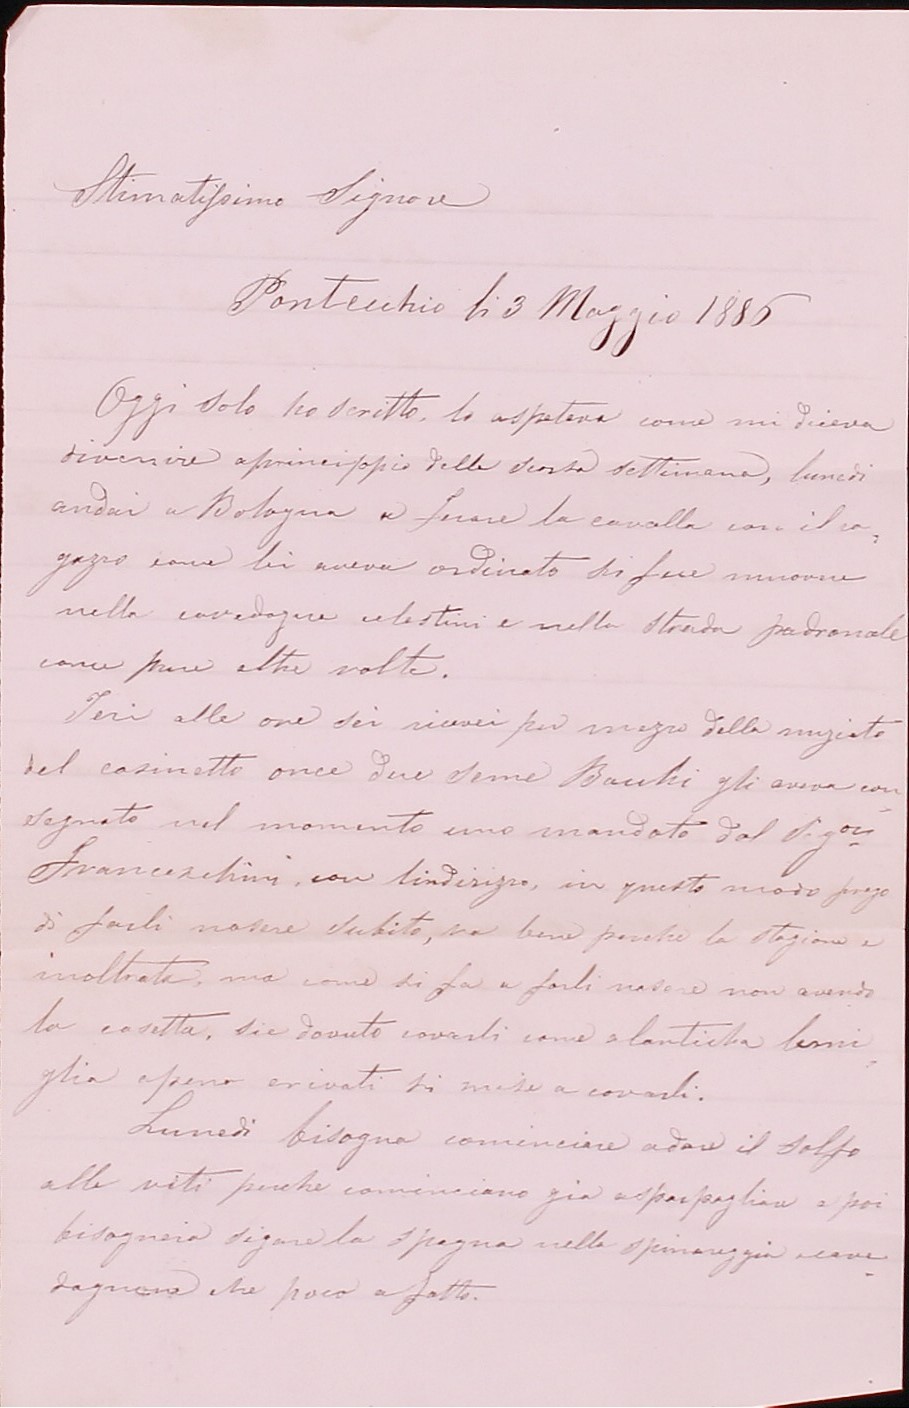 Stimatissimo Signore
Pontecchio li 3 Maggio 1886
Oggi solo ho scritto, lo aspetava come mi diceva
divenire aprincippio della scorsa settimana, lunedi
andai a Bologna a ferare la cavalla con il ra,
gazzo come lei aveva ordinato si fece muovere
nella cavedagne celestini e nella strada padronale
come pure altre volte.
Ieri alle ore sei ricevei per mezzo della
del casinetto once due seme Bachi gli aveva con
segnato nel momento uno mandato dal Sigore
Franceschini, con lindirizzo, in questo modo prego
di farli nasere subito, va bene perche la stagione e
inoltrata, ma come si fa a farli nasere non avendo
la casetta, sie dovuto covarli come alanticha
glia apena arivati si mise a covarli.
Lunedi bisogna cominciare adare il solfo
alle viti perche cominciano gia asparpagliare e poi
bisogneia segare la spagna nella spinareggia
dagnone che poco a fatto.